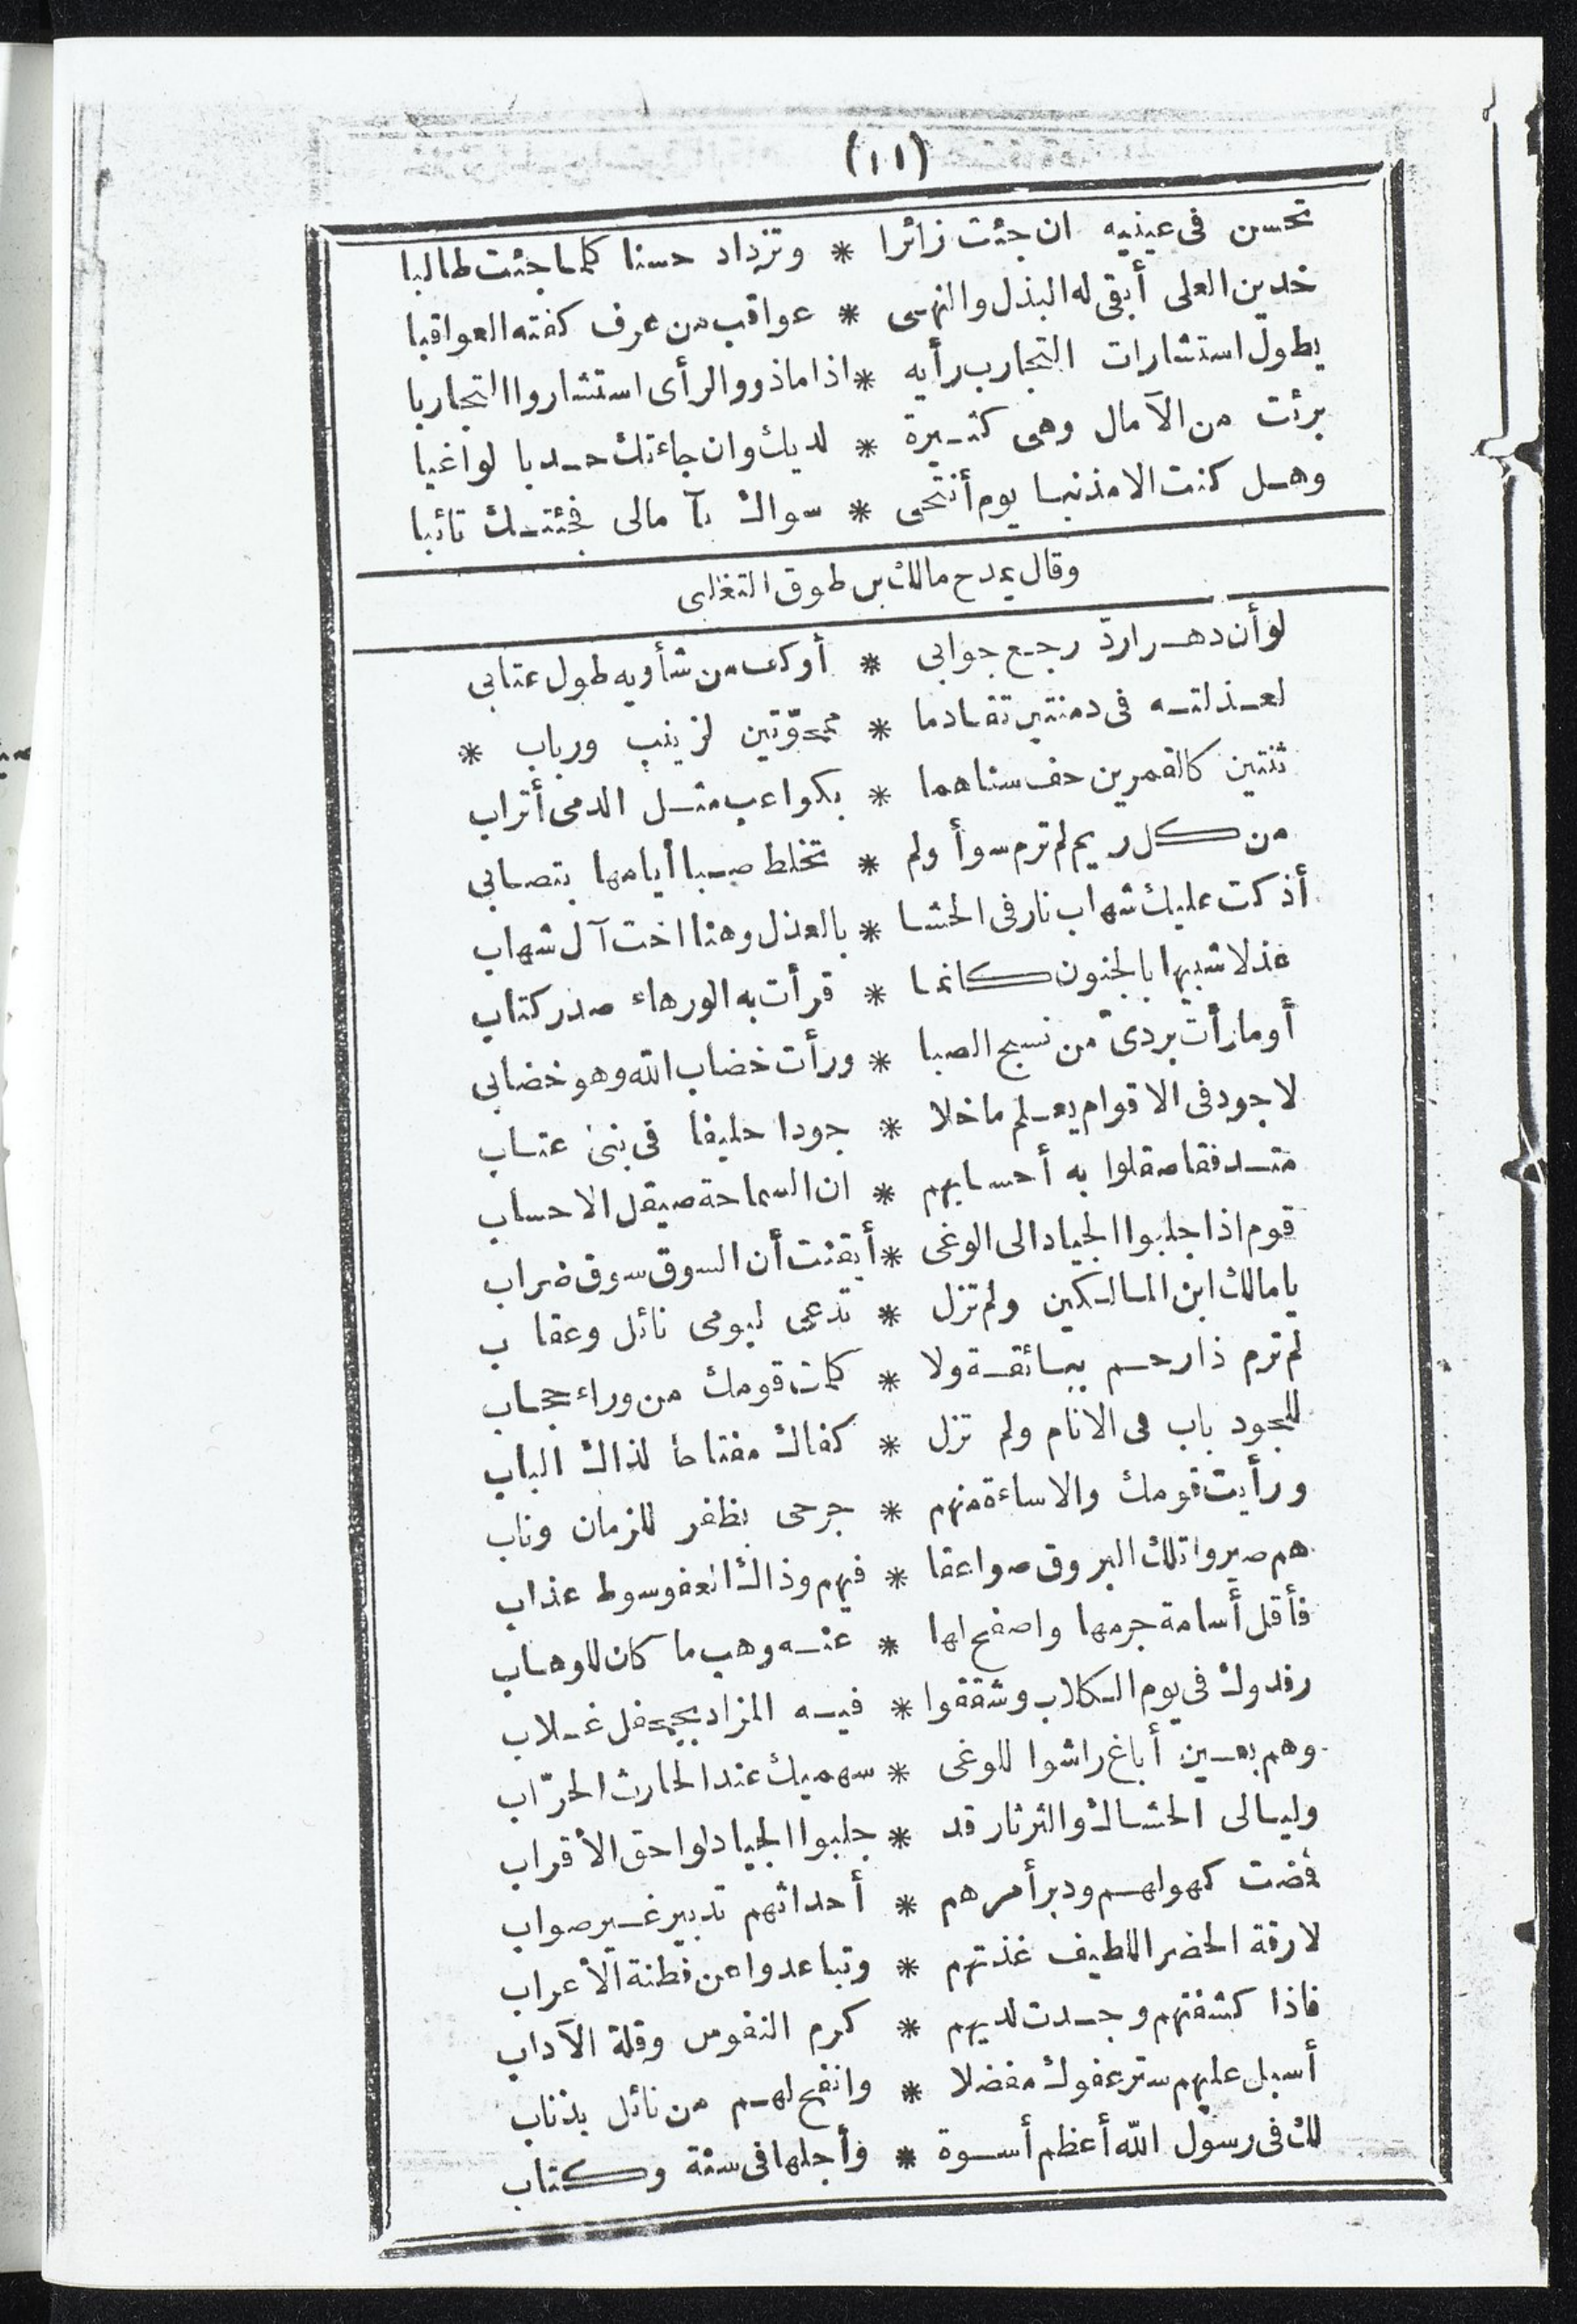 (١١)
تحسن فى عينيه ان جئت زائرا * وتزداد حسنا كلما جئت طالبا
خدين العلى أبقى له البذل والنهى * عواقب من عرف كفته العواقبا
يطول استشارات التجارب رأيه * اذا ماذوو الرأى استشاروا التجاربا
برئت من الآمال وهى كثيرة * لديك وان جاءتك حدبا لواغبا
وهل كنت الا مذنبا يوم أنتحى * سواك بآمالى فجئتك تائبا
وقال يمدح مالك بن طوق التغلبى
لو أن دهرا ردّ رجع جوابى * أو كف من شأويه طول عتابى
لعذلته فى دمنتين تقادما * ممحوّتين لزينب ورباب *
ثنتين كالقمرين حف سناهما * بكواعب مثل الدمى أتراب
من كل ريم لم ترم سوأ ولم * تخلط صبا أيامها بتصابى
أذكت عليك شهاب نار فى الحشا * بالعذل وهنا اخت آل شهاب
عذلا شبيها بالجنون كانما * قرأت به الورهاء صدر كتاب
أومارأت بردىّ من نسج الصبا * ورأت خضاب الله وهو خضابى
لا جود فى الاقوام يعلم ما خلا * جودا حليفا فى بنى عتاب
متدفقا صقلوا به أحسابهم * ان السماحة صيقل الاحساب
قوم اذا جلبوا الجياد الى الوغى * أيقنت أن السوق سوق ضراب
يا مالك ابن المالكين ولم تزل * تدعى ليومى نائل وعقاب
لم ترم ذا رحم ببائقة ولا * كلمت قومك من وراء حجاب
للجود باب فى الانام ولم تزل * كفاك مفتاحا لذاك الباب
ورأيت قومك والاساءة منهم * جرحى بظفر للزمان وناب
هم صيروا تلك البروق صواعقا * فيهم وذاك العفو سوط عذاب
فأقل أسامة جرمها واصفح لها * عنه وهب ما كان للوهاب
رفدوك فى يوم الكلاب وشققوا * فيه المزاد بجحفل غلاب
وهم بعين أباغ راشوا للوغى * سهميك عند الحارث الحرّاب
وليالى الحشاك والثرثار قد * جلبوا الجياد لواحق الأقراب
فضت كهولهم ودبر أمرهم * أحداثهم تدبير غير صواب
لا رقة الحضر اللطيف غذتهم * وتباعدوا عن فطنة الأعراب
فاذا كشفتهم وجدت لديهم * كرم النفوس وقلة الآداب
أسبل عليهم ستر عفوك مفضلا * وانفح لهم من نائل بذناب
لك فى رسول الله أعظم أسوة * وأجلها فى سنة وكتاب